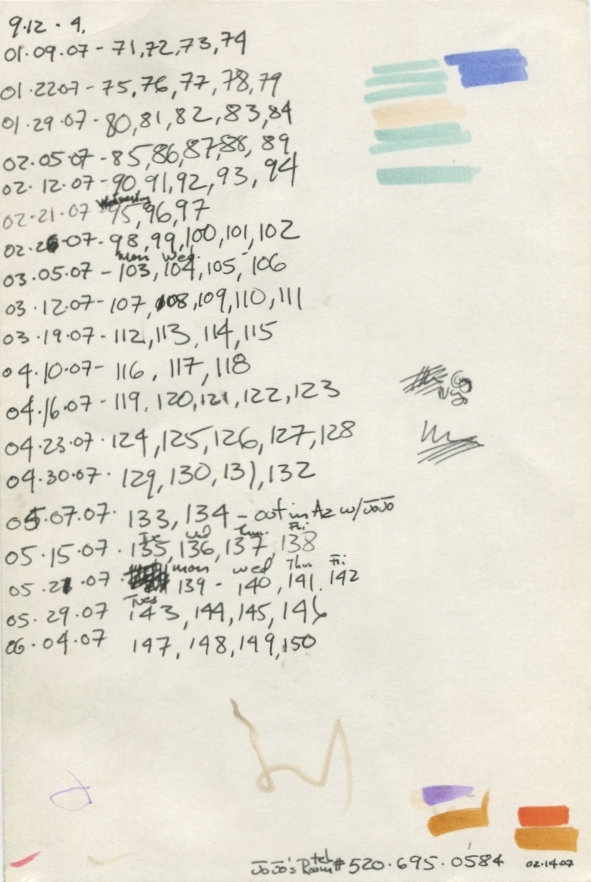 9.12 - 4,
01.09.07 - 71,72,73,74
01.2207 - 75,76,77,78,79
01.29.07 - 80,81,82,83,84
02.05.07 - 85,86,87,88,89
02.12.07 - 90,91,92,93,94
Wednesday
02-21.07 95,96,97
02.26.07 - 98,99,100,101,102
mon Wed.
03.05.07 - 103,104,105,106
03.12.07 - 107,108,109,110,111
03.19.07 - 112,113,114,115
04.10.07 - 116,117,118
04.16.07 - 119,120,121,122,123
04.23.07 - 124,125,126,127,128
04.30.07 - 129,130,131,132
05.07.07. 133,134 - out in Az w/JoJo
Tue Wed Thur. Fri
05.15.07 - 135,136,137,138
mon wed Thur Fri
05.21.07 - 139 - 140,141.142
Tues
05.29.07 143,144,145,146
06.04.07 147,148,149,150
JoJo's Room tel# 520.695.0584
02.14.07